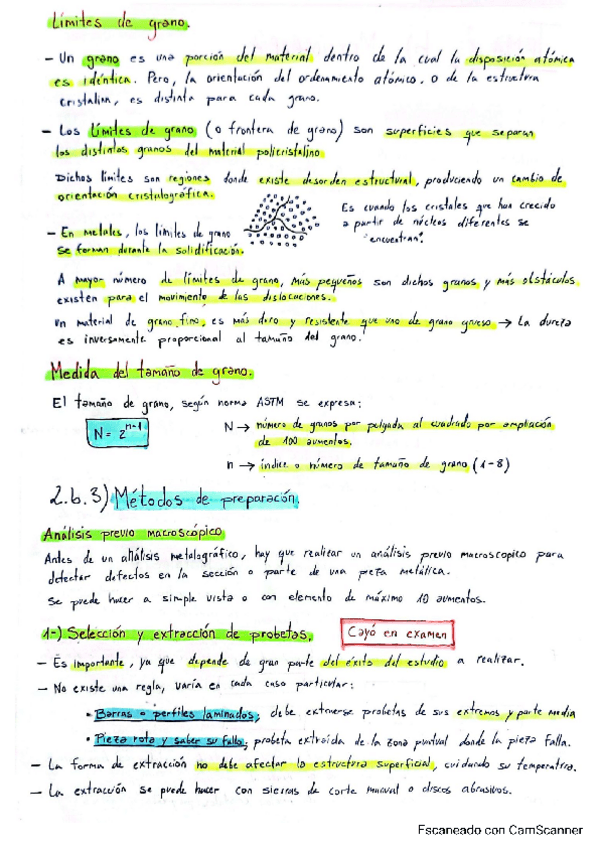 Límites de grano.
- Un grano es una porción del material dentro de la cual la disposición atómica
es idéntica. Pero, la orientación del ordenamiento atómico, o de la estructura
cristalina, es distinta para cada grano.
- Los límites de grano (o frontera de grano) son superficies que separan
los distintos granos del material policristalino
Dichos límites son regiones donde existe desorden estructural, produciendo un cambio de
orientación cristalográfica.
Es cuando los cristales que han crecido
a partir de núcleos diferentes se
"encuentran".
- En metales, los límites de grano
se forman durante la solidificación.
A mayor número de límites de grano, más pequeños son dichos granos y más obstáculos
existen para el movimiento de las dislocaciones.
Un material de grano fino, es más duro y resistente que uno de grano grueso → La dureza
es inversamente proporcional al tamaño del grano.
Medida del tamaño de grano.
El tamaño de grano, según norma ASTM se expresa:
N = 2^(n-1)
N → número de granos por pulgada al cuadrado por ampliación
de 100 aumentos.
n → índice o número de tamaño de grano (1-8)
2.b.3) Métodos de preparación.
Análisis previo macroscópico
Antes de un análisis metalográfico, hay que realizar un análisis previo macroscopico para
detectar defectos en la sección o parte de una pieza metálica.
Se puede hacer a simple vista o con elemento de máximo 10 aumentos.
1-) Selección y extracción de probetas. Cayó en examen
- Es importante, ya que depende de gran parte del éxito del estudio a realizar.
- No existe una regla, varía en cada caso particular:
• Barras o perfiles laminados; debe extraerse probetas de sus extremos y parte media
• Pieza rota y saber su fallo; probeta extraída de la zona puntual donde la pieza falla.
- La forma de extracción no debe afectar la estructura superficial, cuidando su temperatura.
- La extracción se puede hacer con sierras de corte manual o discos abrasivos.
Escaneado con CamScanner